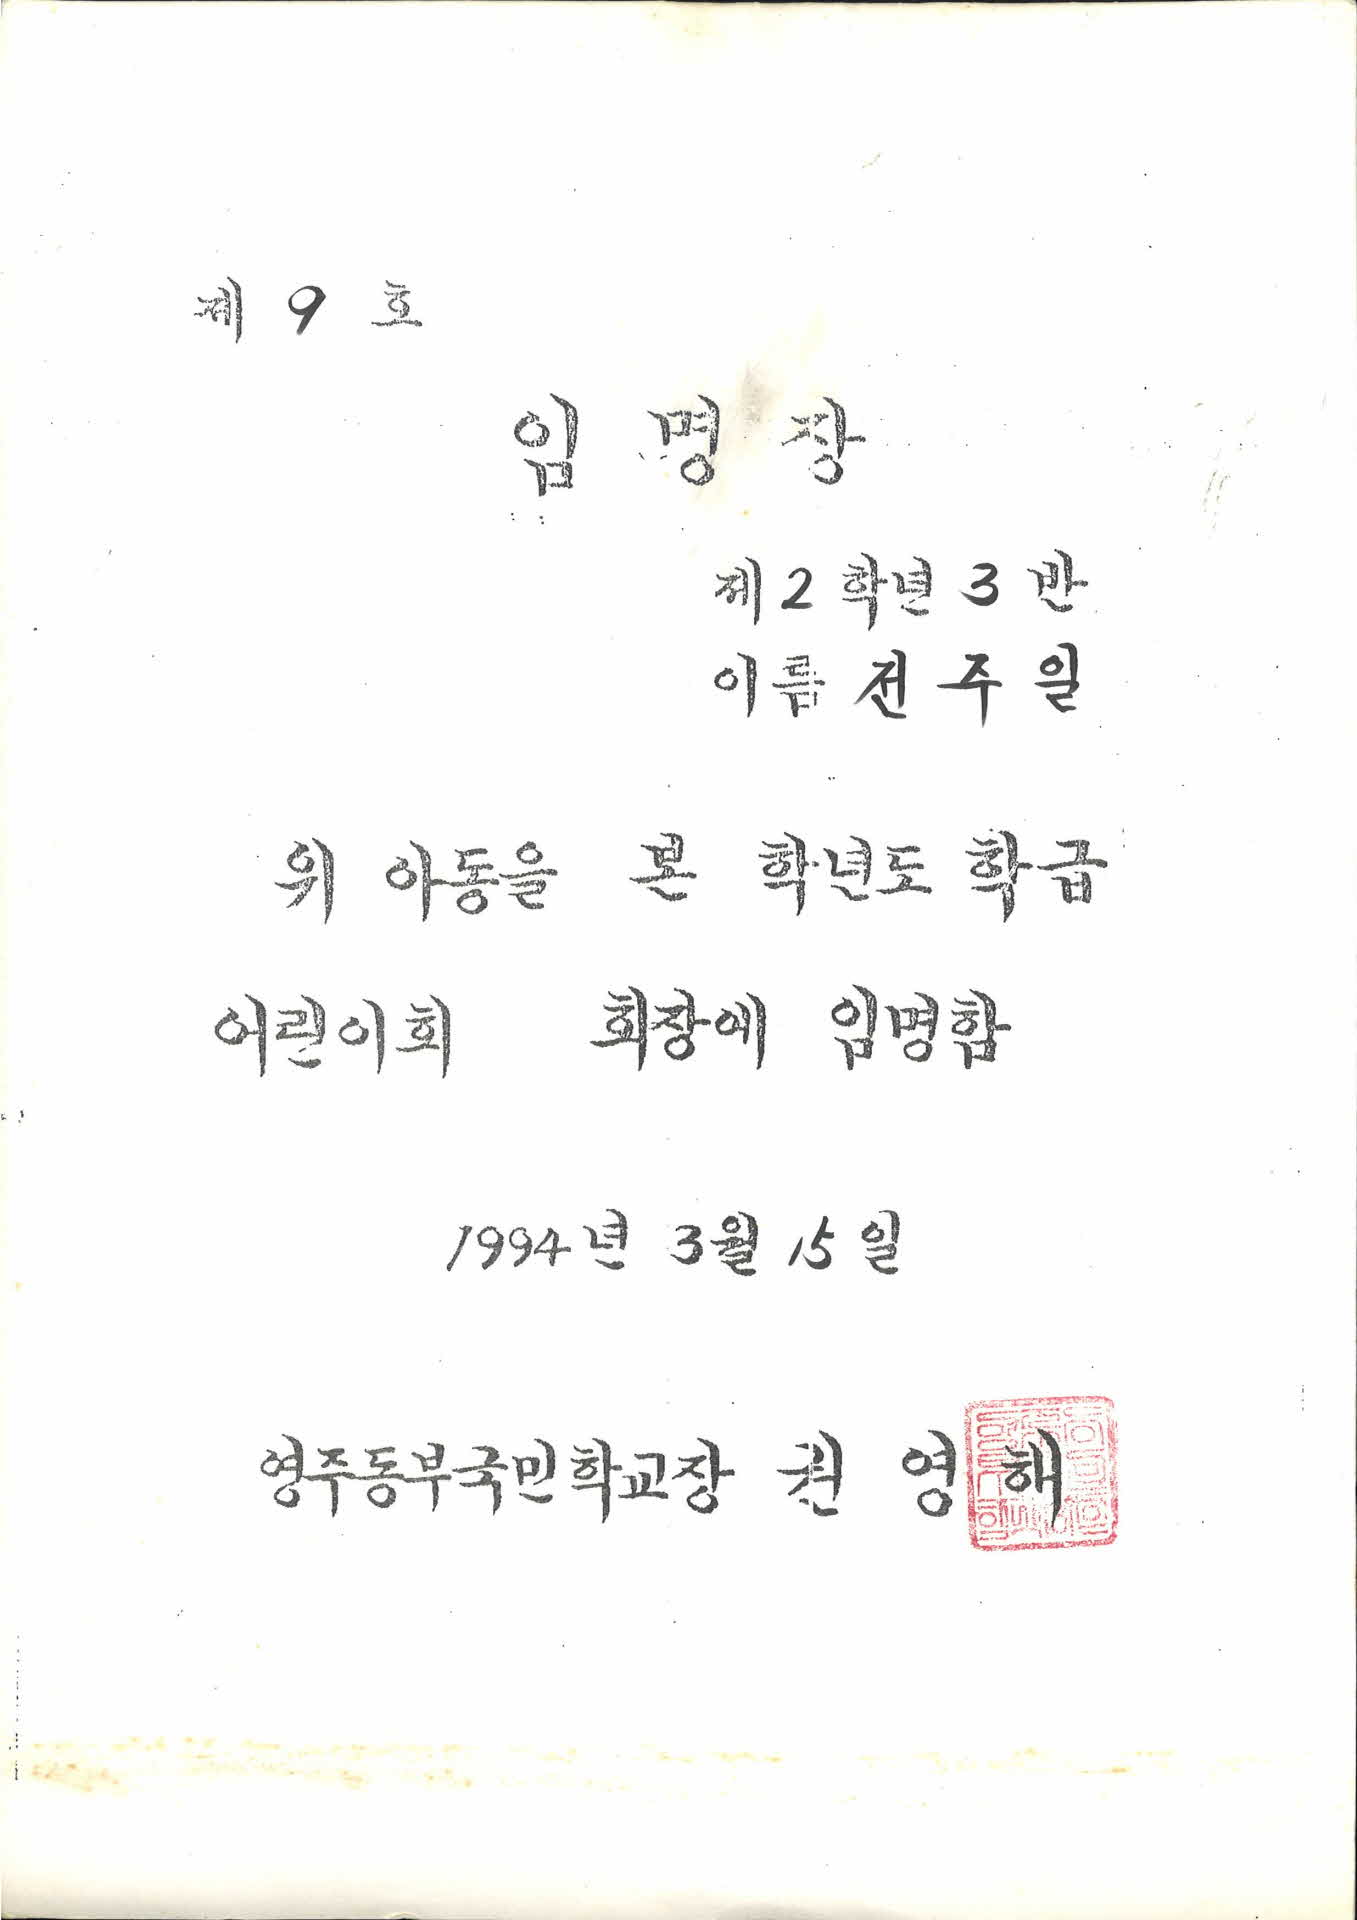 제 9 호
임 명 장
제 2 학년 3 반
이름 전 주 일
위 아동을 본 학년도 학급
어린이회 회장에 임명함
1994년 3월 15일
영주동부국민학교장 권 영 해